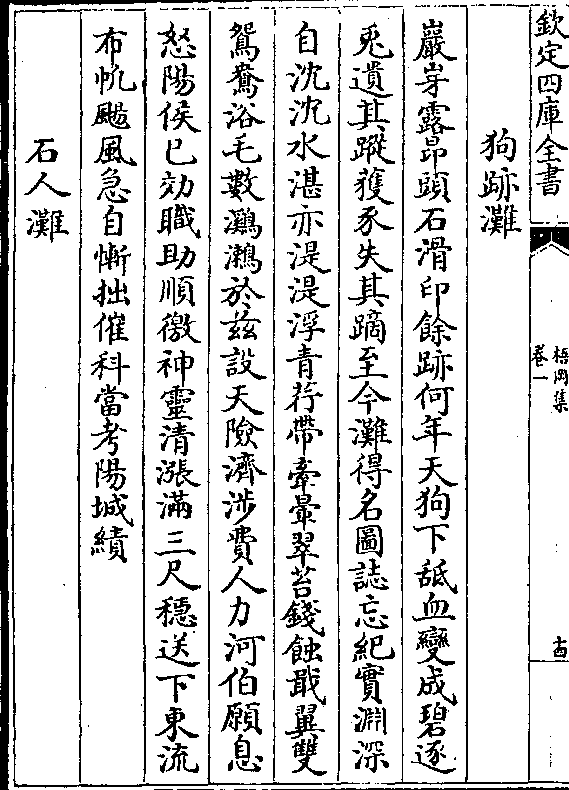 欽定四庫全書
梧岡集
卷一
十四
狗跡灘
巖岈露昂頭石滑印餘跡何年天狗下舐血變成碧逐
兎遺其蹤獲豕失其蹢至今灘得名圖誌忘紀實淵深
自沈沈水湛亦湜湜浮青荇帶牽暈翠苔錢蝕戢翼雙
鴛鴦浴毛數鸂鶒於兹設天險濟涉費人力河伯願息
怒陽侯已効職助順徼神靈清漲滿三尺穩送下東流
布帆颺風急自慚拙催科當考陽城績
石人灘